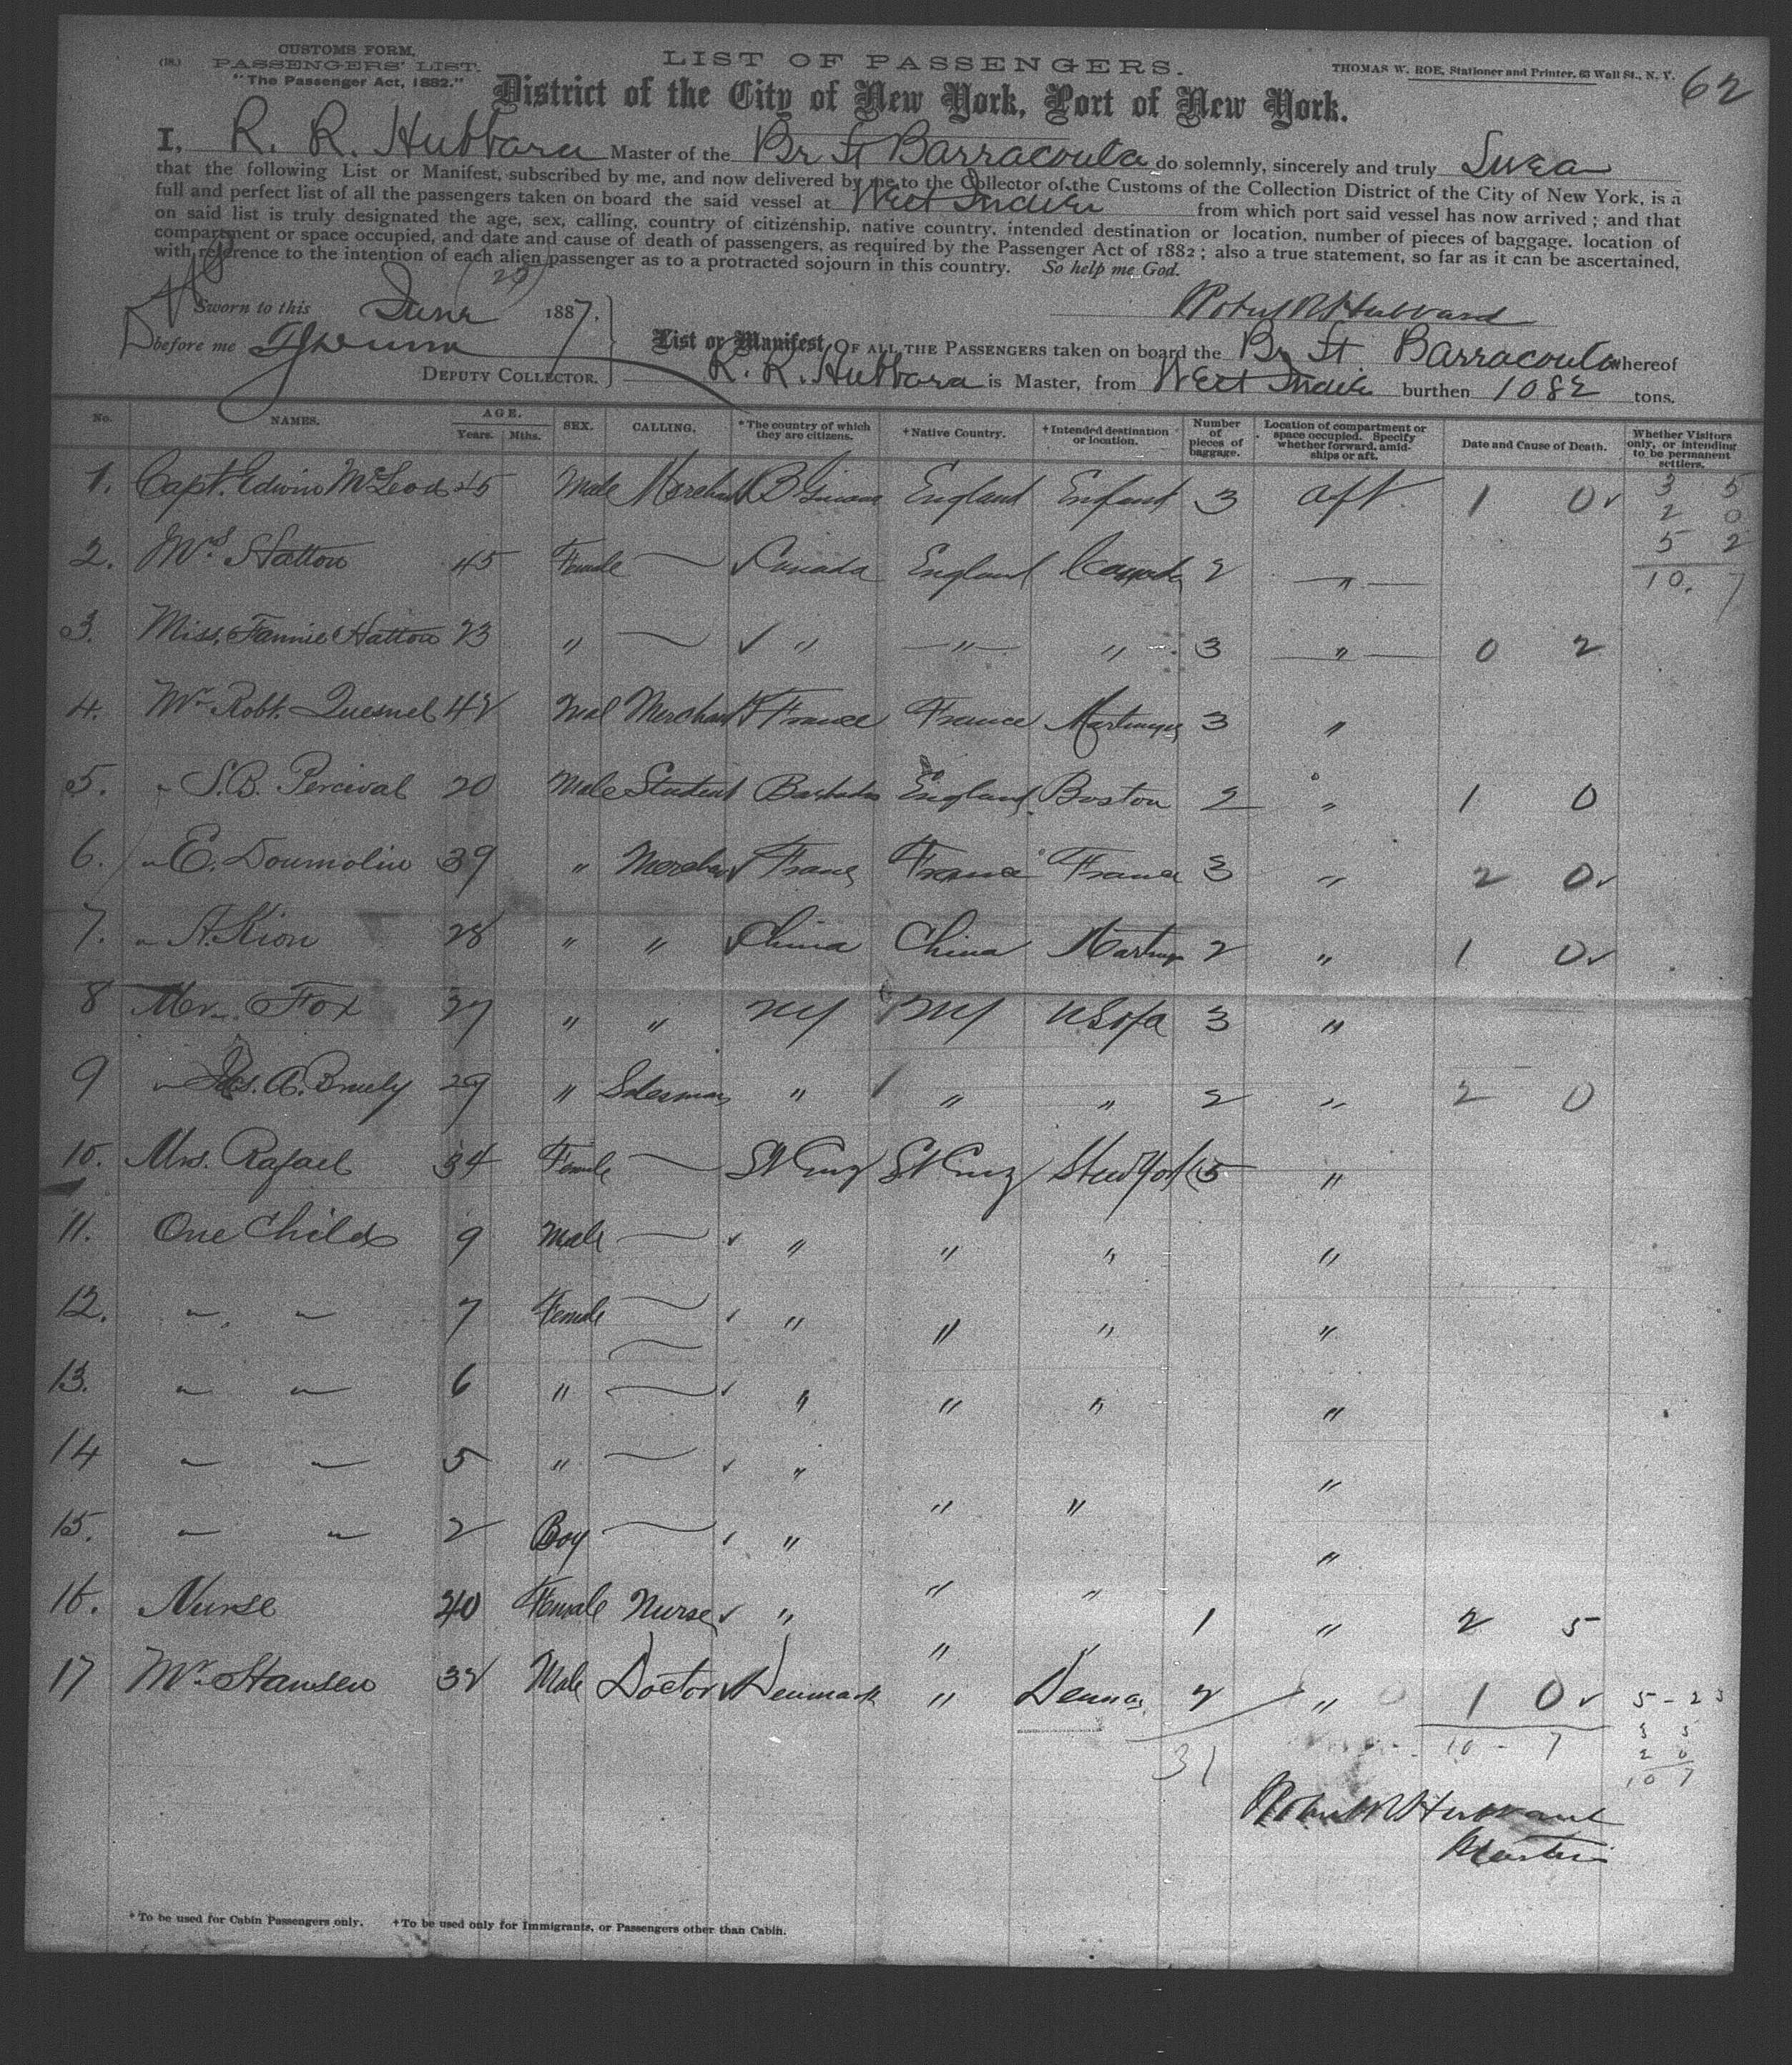 (18.) CUSTOMS FORM,
PASSENGERS' LIST.
"The Passenger Act, 1882."
LIST OF PASSENGERS.
THOMAS W. ROE, Stationer and Printer, 63 Wall St., N. Y.
62
District of the City of New York, Port of New York.
I, R. R. Hubbard Master of the Br St Barracouta do solemnly, sincerely and truly Swear
that the following List or Manifest, subscribed by me, and now delivered by me to the Collector of the Customs of the Collection District of the City of New York, is a
full and perfect list of all the passengers taken on board the said vessel at West Indies from which port said vessel has now arrived; and that
on said list is truly designated the age, sex, calling, country of citizenship, native country, intended destination or location, number of pieces of baggage, location of
compartment or space occupied, and date and cause of death of passengers, as required by the Passenger Act of 1882; also a true statement, so far as it can be ascertained,
with reference to the intention of each alien passenger as to a protracted sojourn in this country. So help me God.
Sworn to this June 1887.
Robert R Hubbard
before me
DEPUTY COLLECTOR.
List or Manifest OF ALL THE PASSENGERS taken on board the Br St Barracouta whereof
R. R. Hubbard is Master, from West Indies burthen 1082 tons.
No. NAMES. AGE. Years. Mths. SEX. CALLING. *The country of which they are citizens. †Native Country. †Intended destination or location. Number of pieces of baggage. Location of compartment or space occupied. Specify whether forward, amidships or aft. Date and Cause of Death. Whether Visitors only, or intending to be permanent settlers.
1. Capt. Edwin McLeod 45 Male Merchant B Guiana England England 3 aft 1 0 3 5
2 0
2. Mrs Hatton 45 Female Canada England Canada 2 " 5 2
10. 7
3. Miss. Fannie Hatton 23 " " " " 3 " 0 2
4. Mr Robt. Quesnel 42 Mal Merchant France France Martinique 3 "
5. " S.B. Percival 20 Male Student Barbados England Boston 2 " 1 0
6. " E. Doumolin 39 " Merchant France France France 3 " 2 0
7. " A. Kion 28 " " China China Martinique 2 " 1 0
8 Mr. Fox 37 " " NY NY U S of A 3 "
9 " A. 29 " Salesman " " " 2 " 2 0
10. Mrs. Rafael 34 Female St Cruz St Cruz New York 5 "
11. One Child 9 Male " " " "
12. " " 7 Female " " " "
13. " " 6 " " " " "
14 " " 5 " " " " "
15. " " 2 Boy " " " "
16. Nurse 40 Female Nurse " " " 1 " 2 5
17 Mr. Hansen 32 Male Doctor Denmark " Denmark 2 " 1 0
31 10 - 7
5 - 2
3 5
2 0
10 7
Robert R Hubbard
Master
*To be used for Cabin Passengers only. †To be used only for Immigrants, or Passengers other than Cabin.